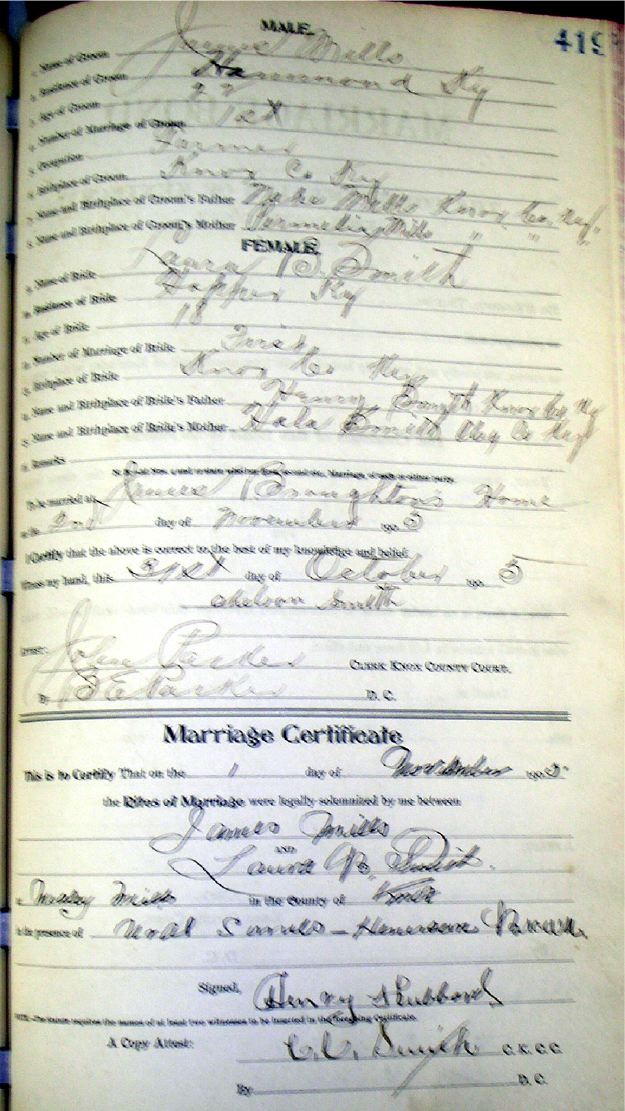 419
MALE.
1. Name of Groom James Mills
2. Residence of Groom Hammond Ky
3. Age of Groom 22
4. Number of Marriage of Groom 1st
5. Occupation Farmer
6. Birthplace of Groom Knox Co Ky
7. Name and Birthplace of Groom's Father Mills Knox Co Ky
8. Name and Birthplace of Groom's Mother Mills " " "
FEMALE.
Name of Bride Laura B. Smith
Residence of Bride Hopper Ky
Age of Bride 18
Number of Marriage of Bride First
Birthplace of Bride Knox Co Ky
Name and Birthplace of Bride's Father Henry Smith Knox Co Ky
Name and Birthplace of Bride's Mother Smith Clay Co Ky
Remarks
To be married at James Broughton's Home
on the 2nd day of November 190 5
I Certify that the above is correct to the best of my knowledge and belief.
Witness my hand, this 31st day of October 190 5
Smith
Attest:
John Parker CLERK KNOX COUNTY COURT.
By Parker D. C.
Marriage Certificate
This is to Certify That on the 1 day of November 190 5
the Rites of Marriage were legally solemnized by me between
James Mills
AND
Laura B. Smith
Mills in the County of Knox
in the presence of
Signed, Henry Hubbard
NOTE.—The statute requires the names of at least two witnesses to be inserted in the foregoing Certificate.
A Copy Attest: C.C. Smith C. K. C. C.
By D. C.